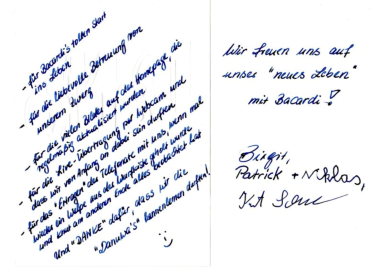 - für Bacardi's tollen Start
ins Leben
- für die liebevolle Betreuung von
unserem Zwerg
- für die vielen Bilder auf der Homepage, die
regelmäßig aktualisiert wurden
- für die Live-Übertragung per Webcam und
dass wir von Anfang an dabei sein durften
- für das "Ertragen" der Telefonate mit uns, wenn mal
wieder ein Welpe aus der Wurfkiste geholt wurde
und man am anderen Ende alles beobachtet hat
Und "DANKE" dafür, dass wir die
"Danuba's" kennenlernen durften!
:-)
Wir freuen uns auf
unser "neues Leben"
mit Bacardi!
Birgit,
Patrick + Niklas,